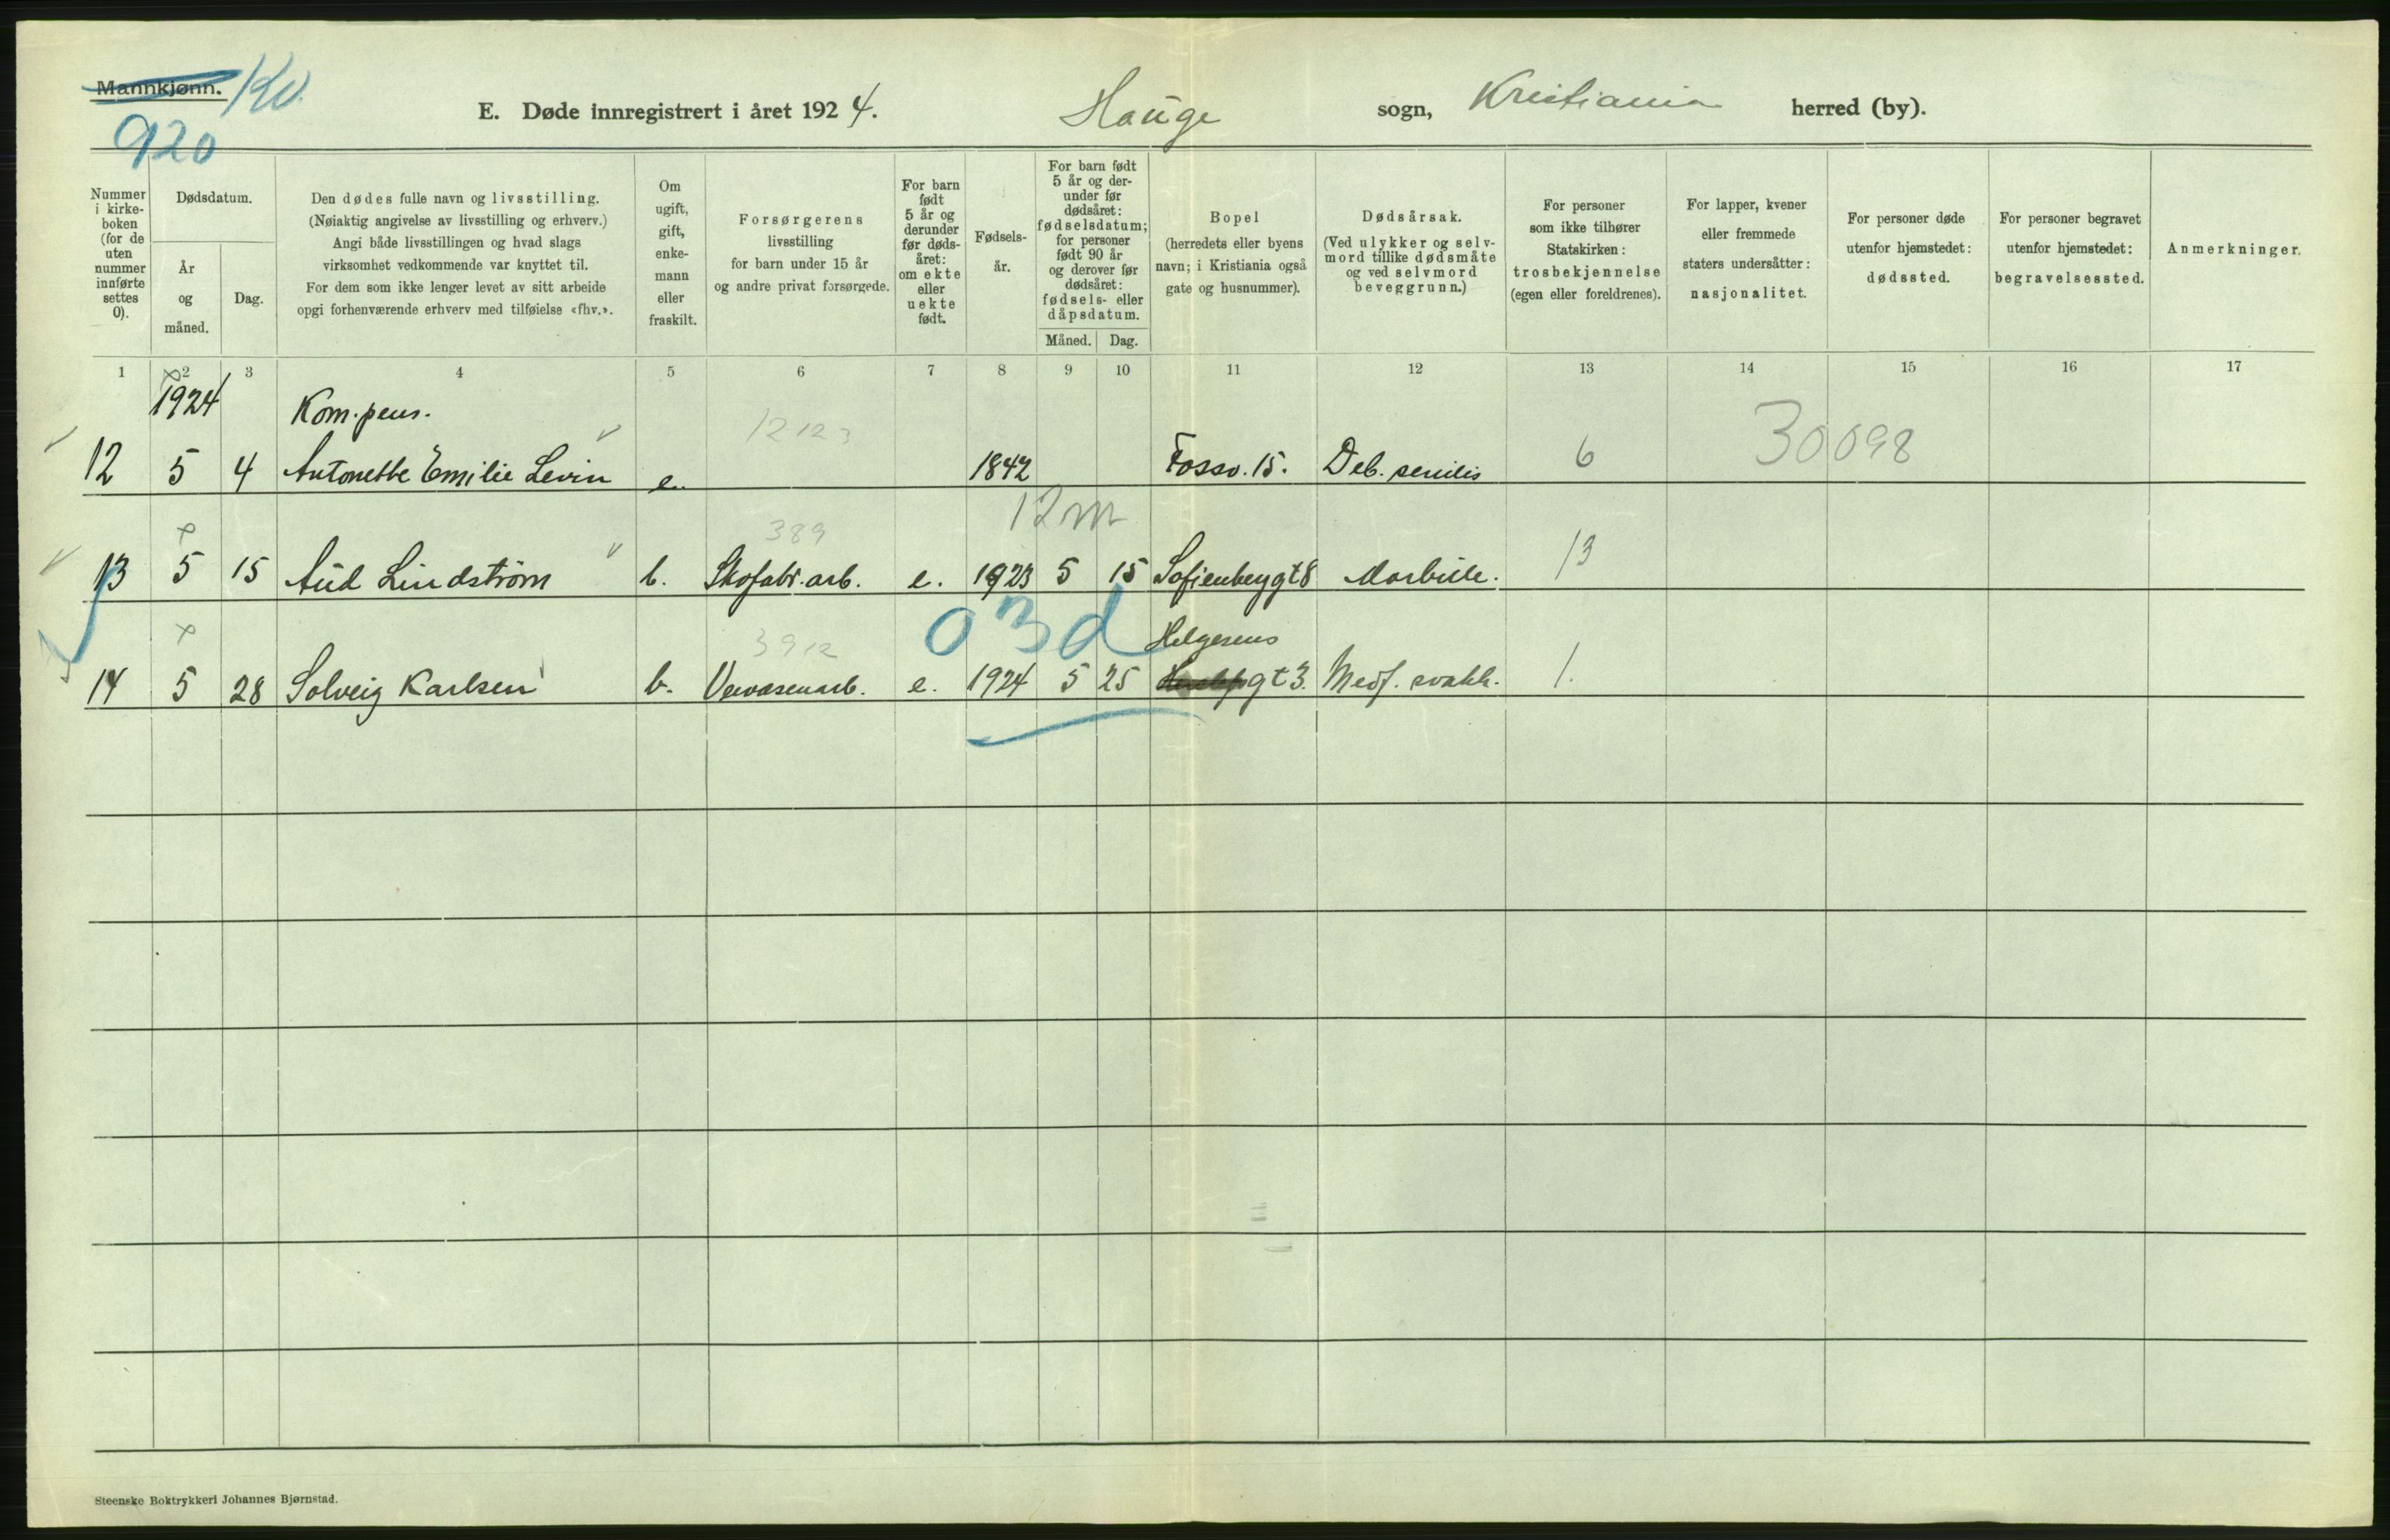 Mannkjønn. Kv.
920
E. Døde innregistrert i året 1924. Hauge sogn, Kristiania herred (by).
Nummer
i kirke-
boken
(for de
uten
nummer
innførte
settes
0).
Dødsdatum.
År
og
måned.
Dag.
Den dødes fulle navn og livsstilling.
(Nøiaktig angivelse av livsstilling og erhverv.)
Angi både livsstillingen og hvad slags
virksomhet vedkommende var knyttet til.
For dem som ikke lenger levet av sitt arbeide
opgi forhenværende erhverv med tilføielse «fhv.».
Om
ugift,
gift,
enke-
mann
eller
fraskilt.
Forsørgerens
livsstilling
for barn under 15 år
og andre privat forsørgede.
For barn
født
5 år og
derunder
før døds-
året:
om ekte
eller
uekte
født.
Fødsels-
år.
For barn født
5 år og der-
under før
dødsåret:
fødselsdatum;
for personer
født 90 år
og derover før
dødsåret:
fødsels- eller
dåpsdatum.
Måned. Dag.
Bopel
(herredets eller byens
navn; i Kristiania også
gate og husnummer).
Dødsårsak.
(Ved ulykker og selv-
mord tillike dødsmåte
og ved selvmord
beveggrunn.)
For personer
som ikke tilhører
Statskirken:
trosbekjennelse
(egen eller foreldrenes).
For lapper, kvener
eller fremmede
staters undersåtter:
nasjonalitet.
For personer døde
utenfor hjemstedet:
dødssted.
For personer begravet
utenfor hjemstedet:
begravelsessted.
Anmerkninger.
1 2 3 4 5 6 7 8 9 10 11 12 13 14 15 16 17
1924 Kom. pens. 12123
12 5 4 Antonette Emilie Levin e. 1842 Fossv. 15. Deb. senilis 6 30098
389 12m
13 5 15 Aud Lindström b. Skofabr. arb. e. 1923 5 15 Sofienberggt 8 Morbille. 13
3912 03d Helgesens
14 5 28 Solveig Karlsen b. e. 1924 5 25 gt 3. Medf. svakh. 1.
Steenske Boktrykkeri Johannes Bjørnstad.